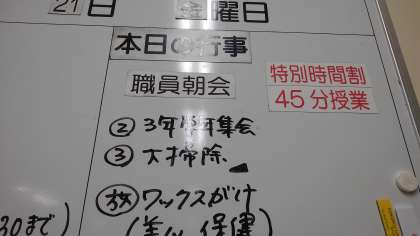 21日 金曜日
本日の行事
職員朝会
特別時間割
45分授業
② 3年学年集会
③ 大掃除
放 ワックスがけ
30まで) ( 保健)